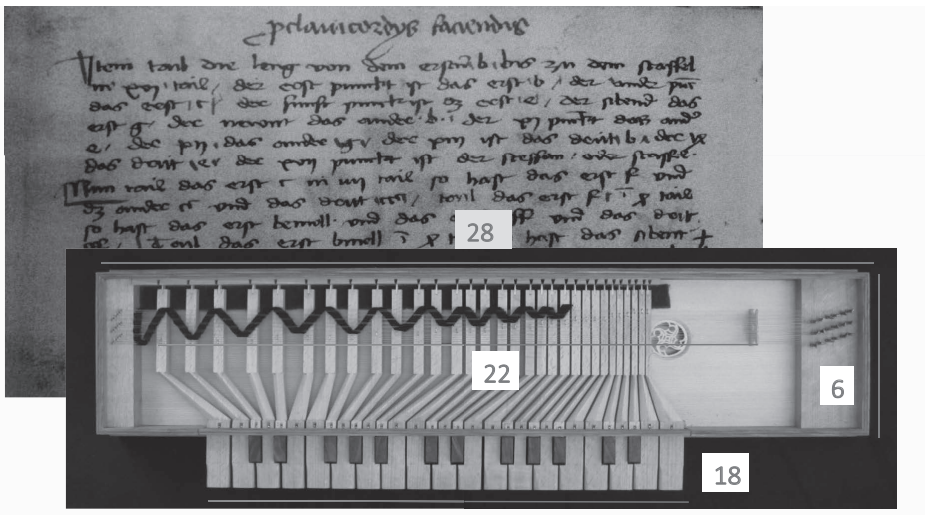 pclavicordys faciendis
Item tail die leng von dem erstn b bis zu dem staffel
in xvij tail / der erst punckt ist das erst b / der ander
das erst c der funft punckt ist erst e / der sibend das
erst g / der newent das ander b der xj punckt das ander
e / der xij das ander g der xiij ist das dritt b
das dritt e der xvij punckt ist der steffan oder staffel
Nun tail das erst c in iiij tail so hast das erst f vnd
ander c vnd das dritt tail das erst f tail
so hast das erst bemoll vnd das ff vnd das dritt
tail das erst bmoll hast das sibent
28
22
6
18